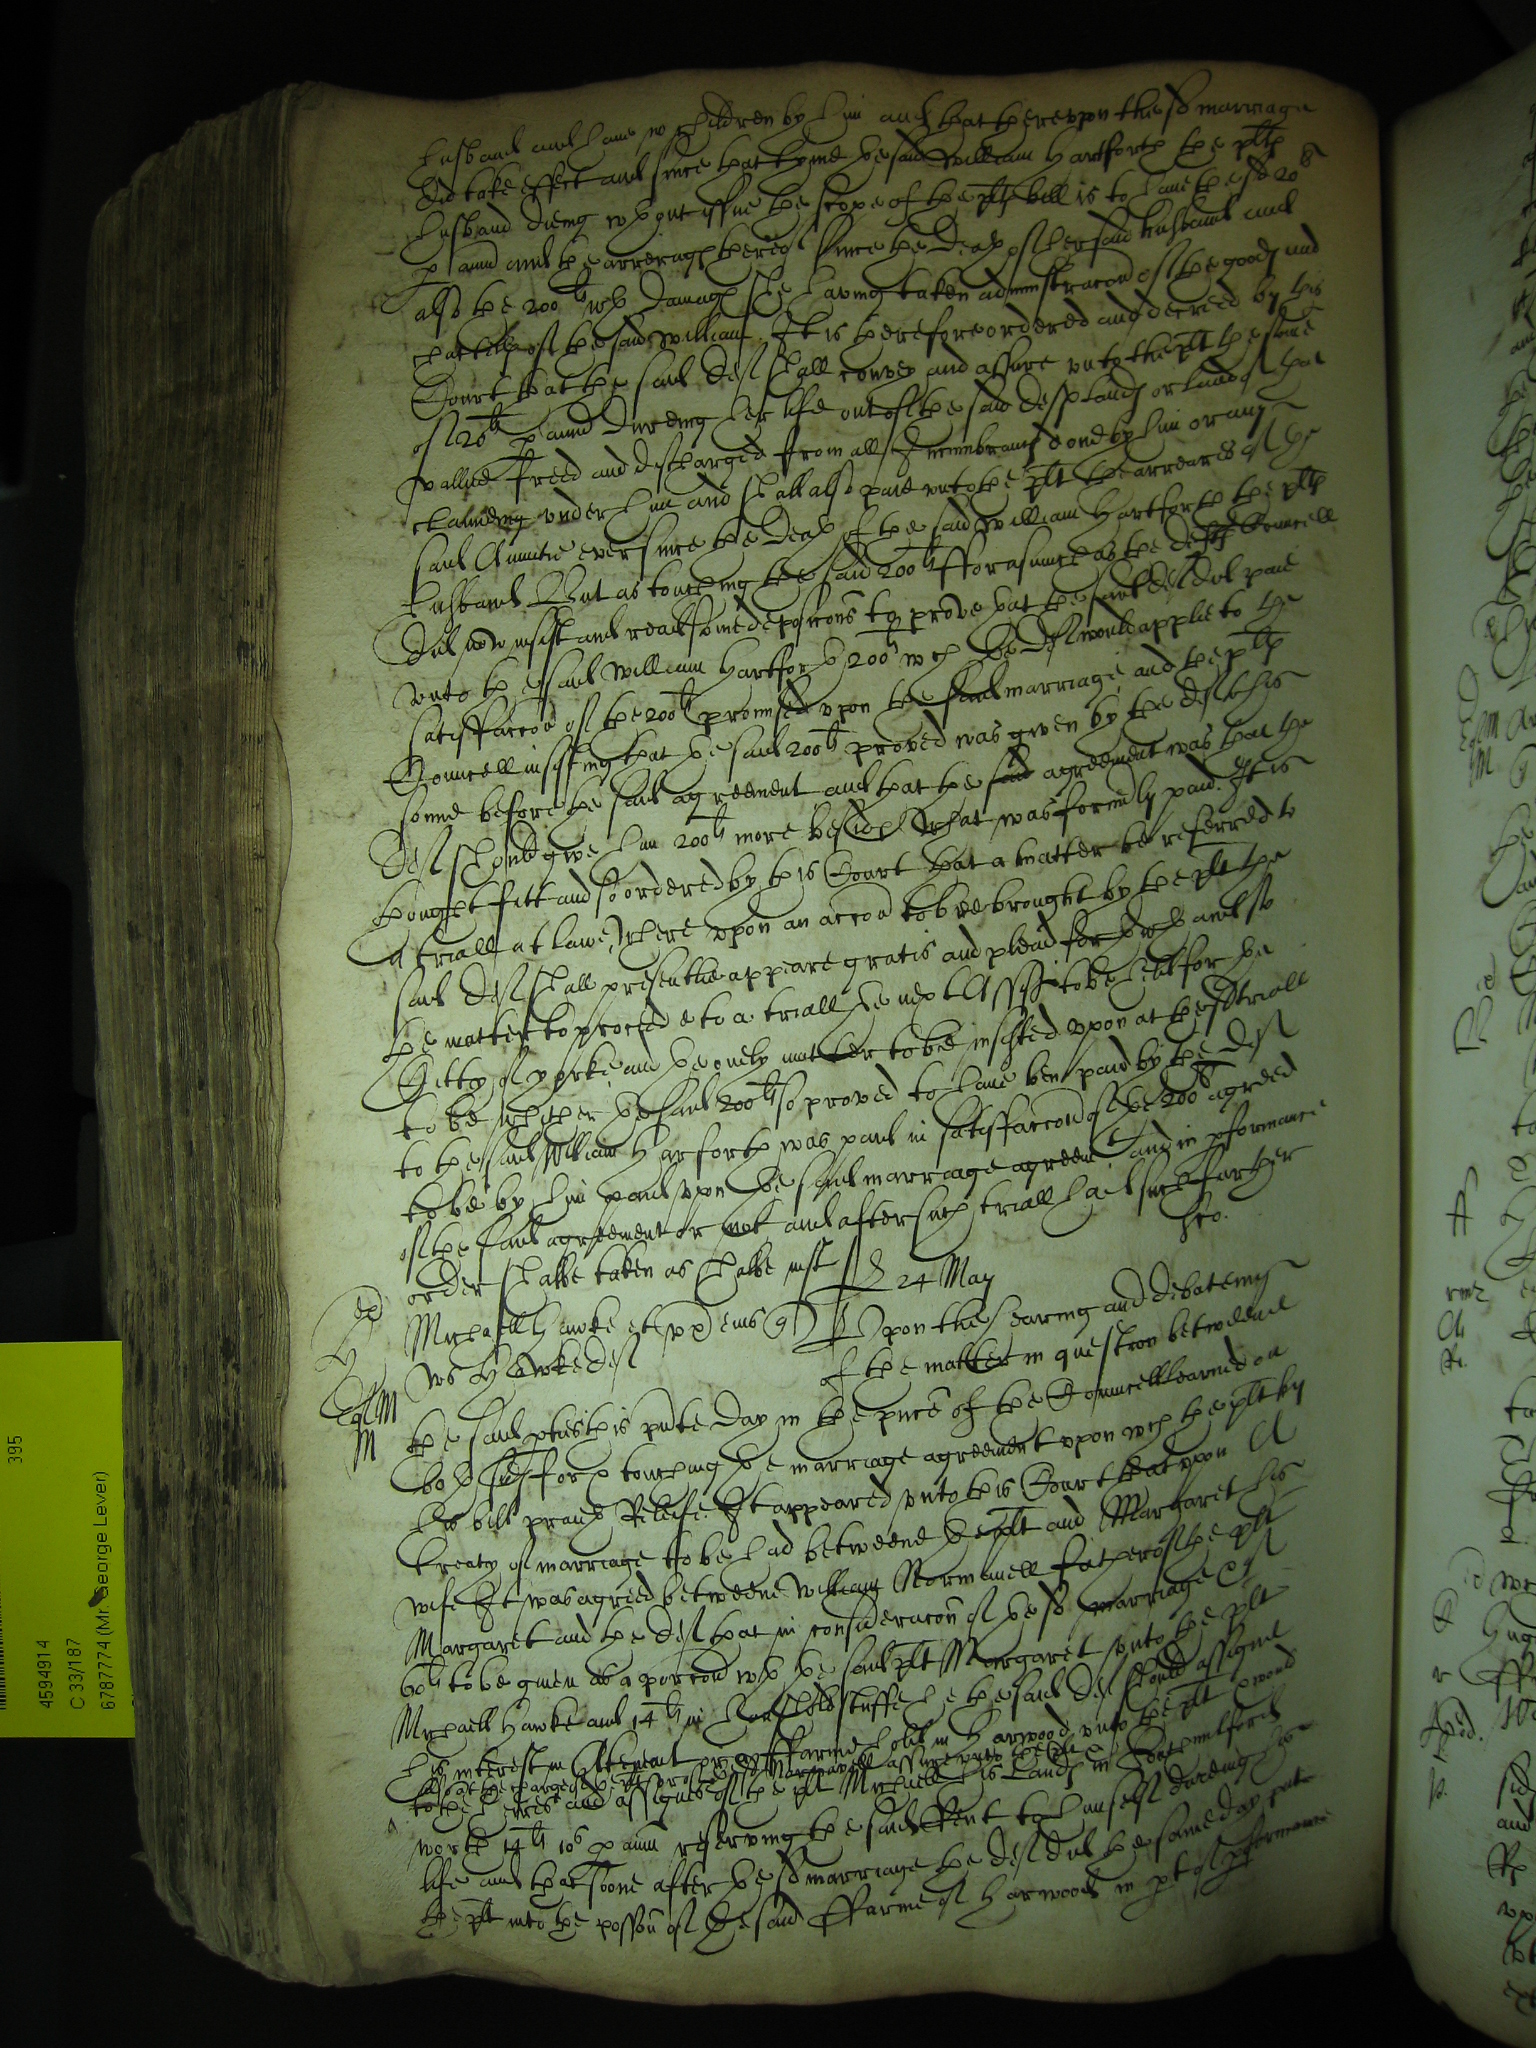 husband and have no children by him and that thereupon the sd marriage
did take effect and since that tyme the said William Hartforth the plts
husband dieng wthout issue the scope of the plts bill is to have the sd 20li
p annū and the arrerages thereof since the death of her said husband and
also the 200li wth damages she having taken administracon of the goods and
chattells of the said William. It is therefore ordered and decreed by this
Court that the said deft shall convey and assure unto the plt the some
of 20li p annū dureing her life out of the said defts lands or lands of that
vallue freed and discharged from all Incumbrances done by him or any
claimeing under him and shall also paie unto the plt the arreares of the
said Annuitie ever since the death of the said William Hartforth the plts
husband But as touching the said 200li fforasmuch as the defts Councell
did now insist and read some deposicons to prove that the said deft did paie
unto the said William Hartforth 200li wch the deft would applie to the
satisfaccon of the 200li promised upon the said marriage and the plts
Councell insisting that the said 200li proved was given by the deft to his
sonne before the said agreement and that the said agreement was that the
deft should give him 200li more besides what was formerly paid. It is
thought fitt and soe ordered by this Court that a matter be referred to
a triall at lawe, where upon an accon to bee brought by the plt the
said deft shall presentlie appeare gratis and plead forthwth and so
the matter to proceede to a triall the next Assises to be held for the
Citty of yorke and the onely matter to bee insisted upon at the sd triall
to be whether the said 200li so proved to have ben paid by the deft
to the said William Harforth was paid in satisfaccon of the 200li agreed
to be by him paid upon the said marriage agreemt and in pformance
of the said agreement or not and after such triall had such further
order shalbe taken as shalbe meet
24 May
Michaell Hawke et ux plts
Upon the hearing and debateing
vs Hawke deft
of the matter in question betweene
the said pties this pnte day in the pnce of the Councell learned on
both sides for & touching the marriage agreement upon wch the plt by
his bill praieth Releife. It appeared unto this Court that upon a
treaty of marriage to be had betweene the plt and Margaret his
wife It was agreed betweene William Normavell father of the plt
Margaret and the deft that in consideracon of the sd marriage & of
60li to be given as a porcon wth the said plt Margaret unto the plt
Michaell Hawke and 14li in houshold stuffe he the said deft should assigne
his interest in A tenemt or ffarme hold in Harwood unto the plt
to the heires and assignes of the plt Michaell his Lands in
worth 14li 10s p annū reserving the said Rent to himself dureing his
life and that soone after the sd marriage the deft did the same day putt
the plt into the possōn of the said ffarme of Harwood in pt of pformance
395
4594914
C 33/187
6787774 (Mr. George Lever)